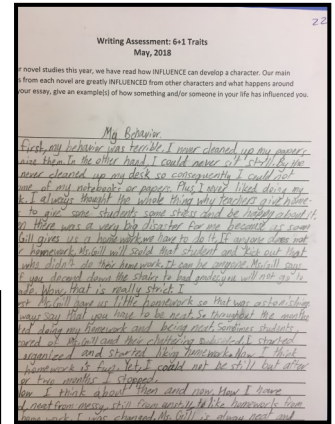 22
Writing Assessment: 6+1 Traits
May, 2018
r novel studies this year, we have read how INFLUENCE can develop a character. Our main
s from each novel are greatly INFLUENCED from other characters and what happens around
your essay, give an example(s) of how something and/or someone in your life has influenced you.
My Behavior.
first, my behavior was terrible. I never cleaned up my papers
nize them. In the other hand I could never sit still. By the
never cleaned up my desk so consequently I could not
ome of my notebooks or papers. Plus, I never liked doing my
k. I always thought the whole thing why teachers give home-
to give some students some stress and be happy about it.
n there was a very big disaster for me because as soon
Gill gives us a homework we have to do it. If anyone does not
r homework, Ms. Gill will scold that student and kick out that
who didn't do their homework. It can be Ms. Gill says
you descend down the stairs to bad grades you will not go to
ade. Wow, that is really strict I
st Ms. Gill gave us little homework so that was astonishing.
ways say that you have to be neat. So throughout the months
ted doing my homework and being neat. Sometimes students
ared of Ms. Gill and their chattering subsided. I started
organized and started liking homework. Now I think
homework is fun. Yet, I could not be still but after
or two months I stopped.
Now I think about then and now. How I have
d neat from messy, still from to like homework from
homework. I was changed. Ms. Gill is always neat and